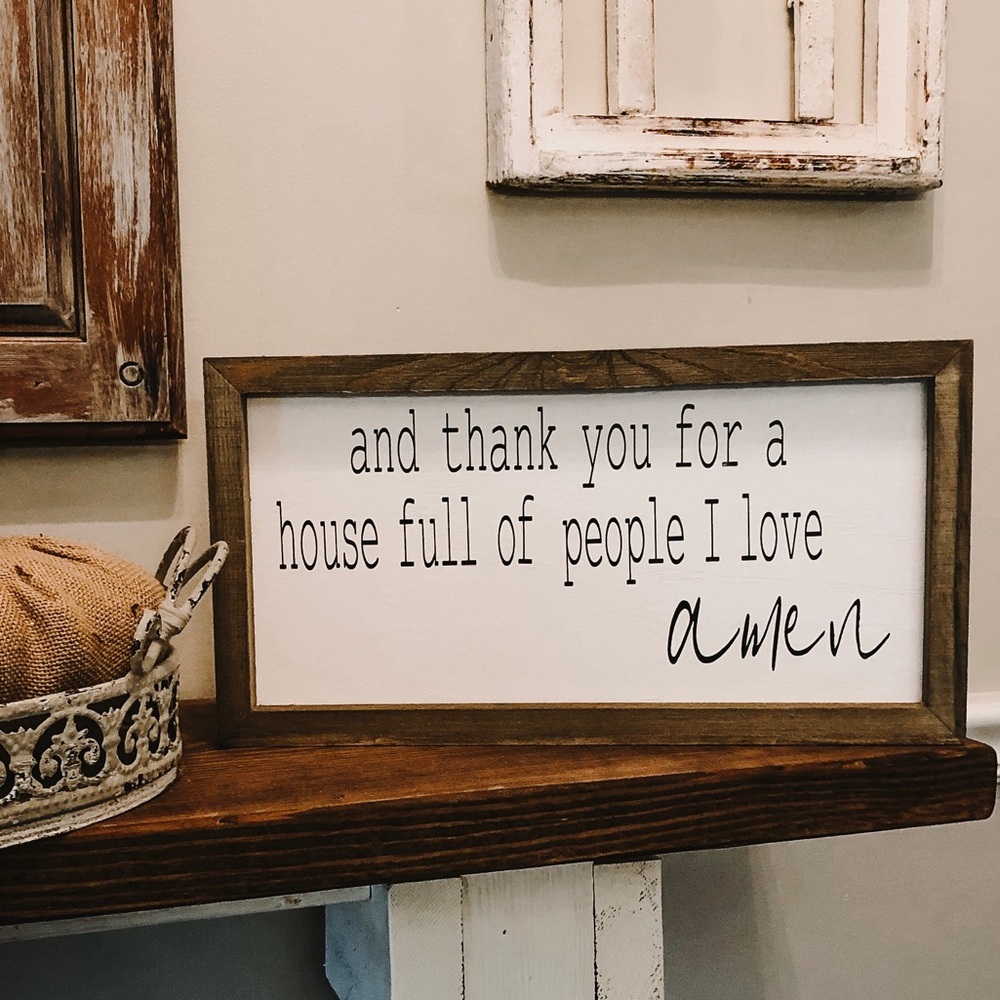 and thank you for a
house full of people I love
amen